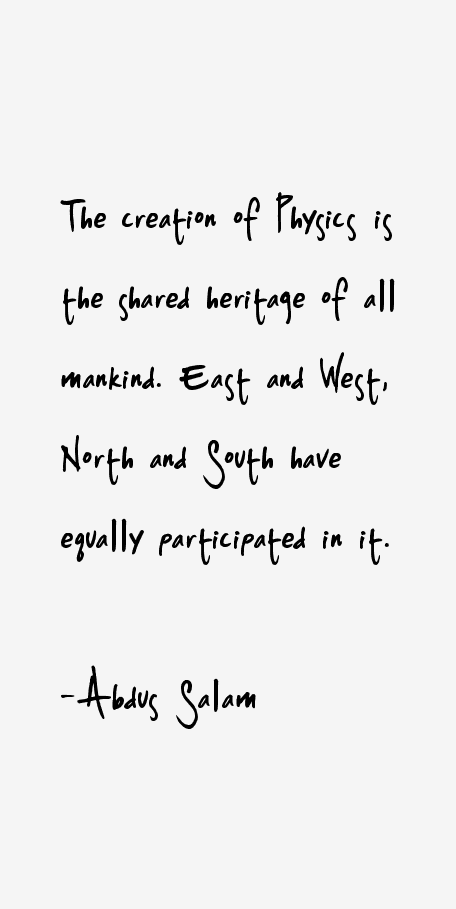 The creation of Physics is
the shared heritage of all
mankind. East and West,
North and South have
equally participated in it.
-Abdus Salam